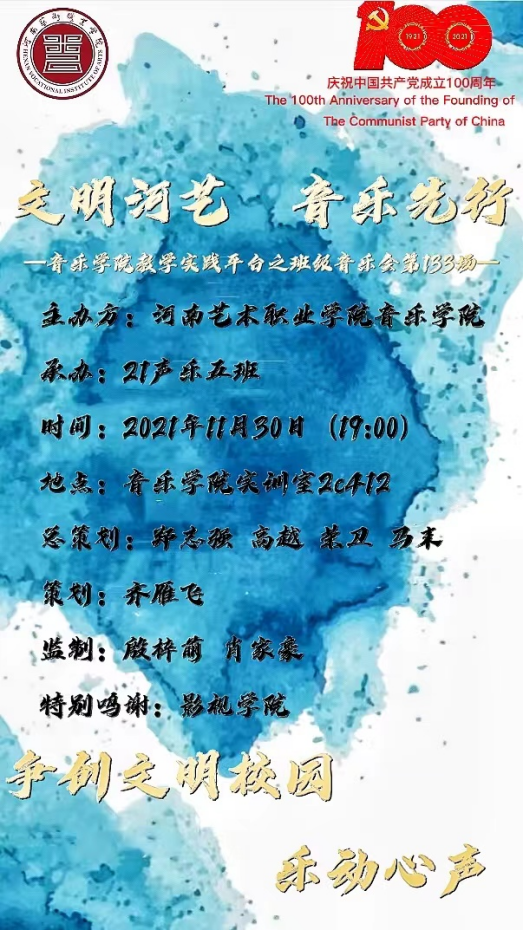 河南艺术职业学院
HENAN VOCATIONAL INSTITUTE OF ARTS
100
1921 2021
庆祝中国共产党成立100周年
The 100th Anniversary of the Founding of
The Communist Party of China
文明河艺 音乐先行
—音乐学院教学实践平台之班级音乐会第133场—
主办方：河南艺术职业学院音乐学院
承办：21声乐五班
时间：2021年11月30日（19:00）
地点：音乐学院实训室2c412
总策划：郑志强 高越 荣卫 马末
策划：齐雁飞
监制：殷梓萌 肖家豪
特别鸣谢：影视学院
争创文明校园
乐动心声